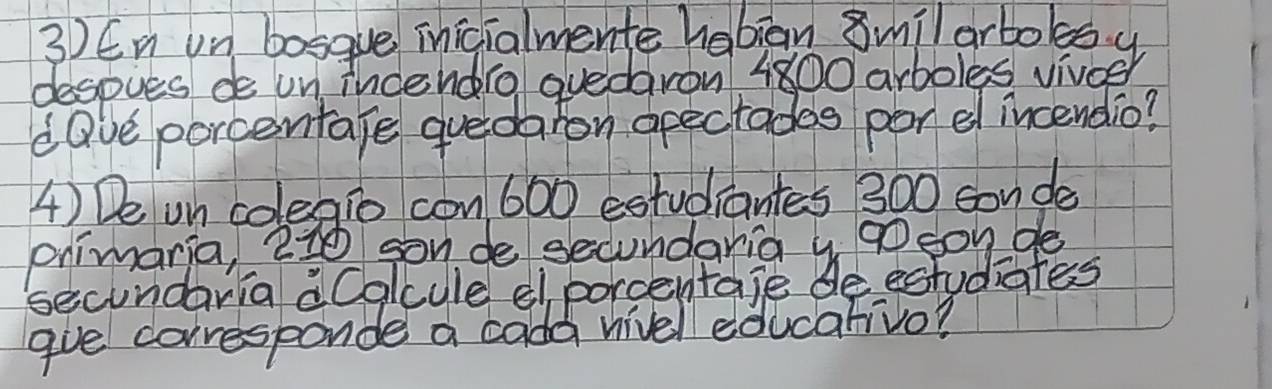 3) En un bosque inicialmente habian 8mil arboles.y
despues de un incendio quedaron 4800 arboles vivos
¿Qué porcentaje quedaron apectados por el incendio?
4) De un colegio con 600 estudiantes 300 son de
primaria, 210 son de secundaria y 90 son de
secundaria ¿Calcule el porcentaje de estudiates
que corresponde a cada nivel educativo?